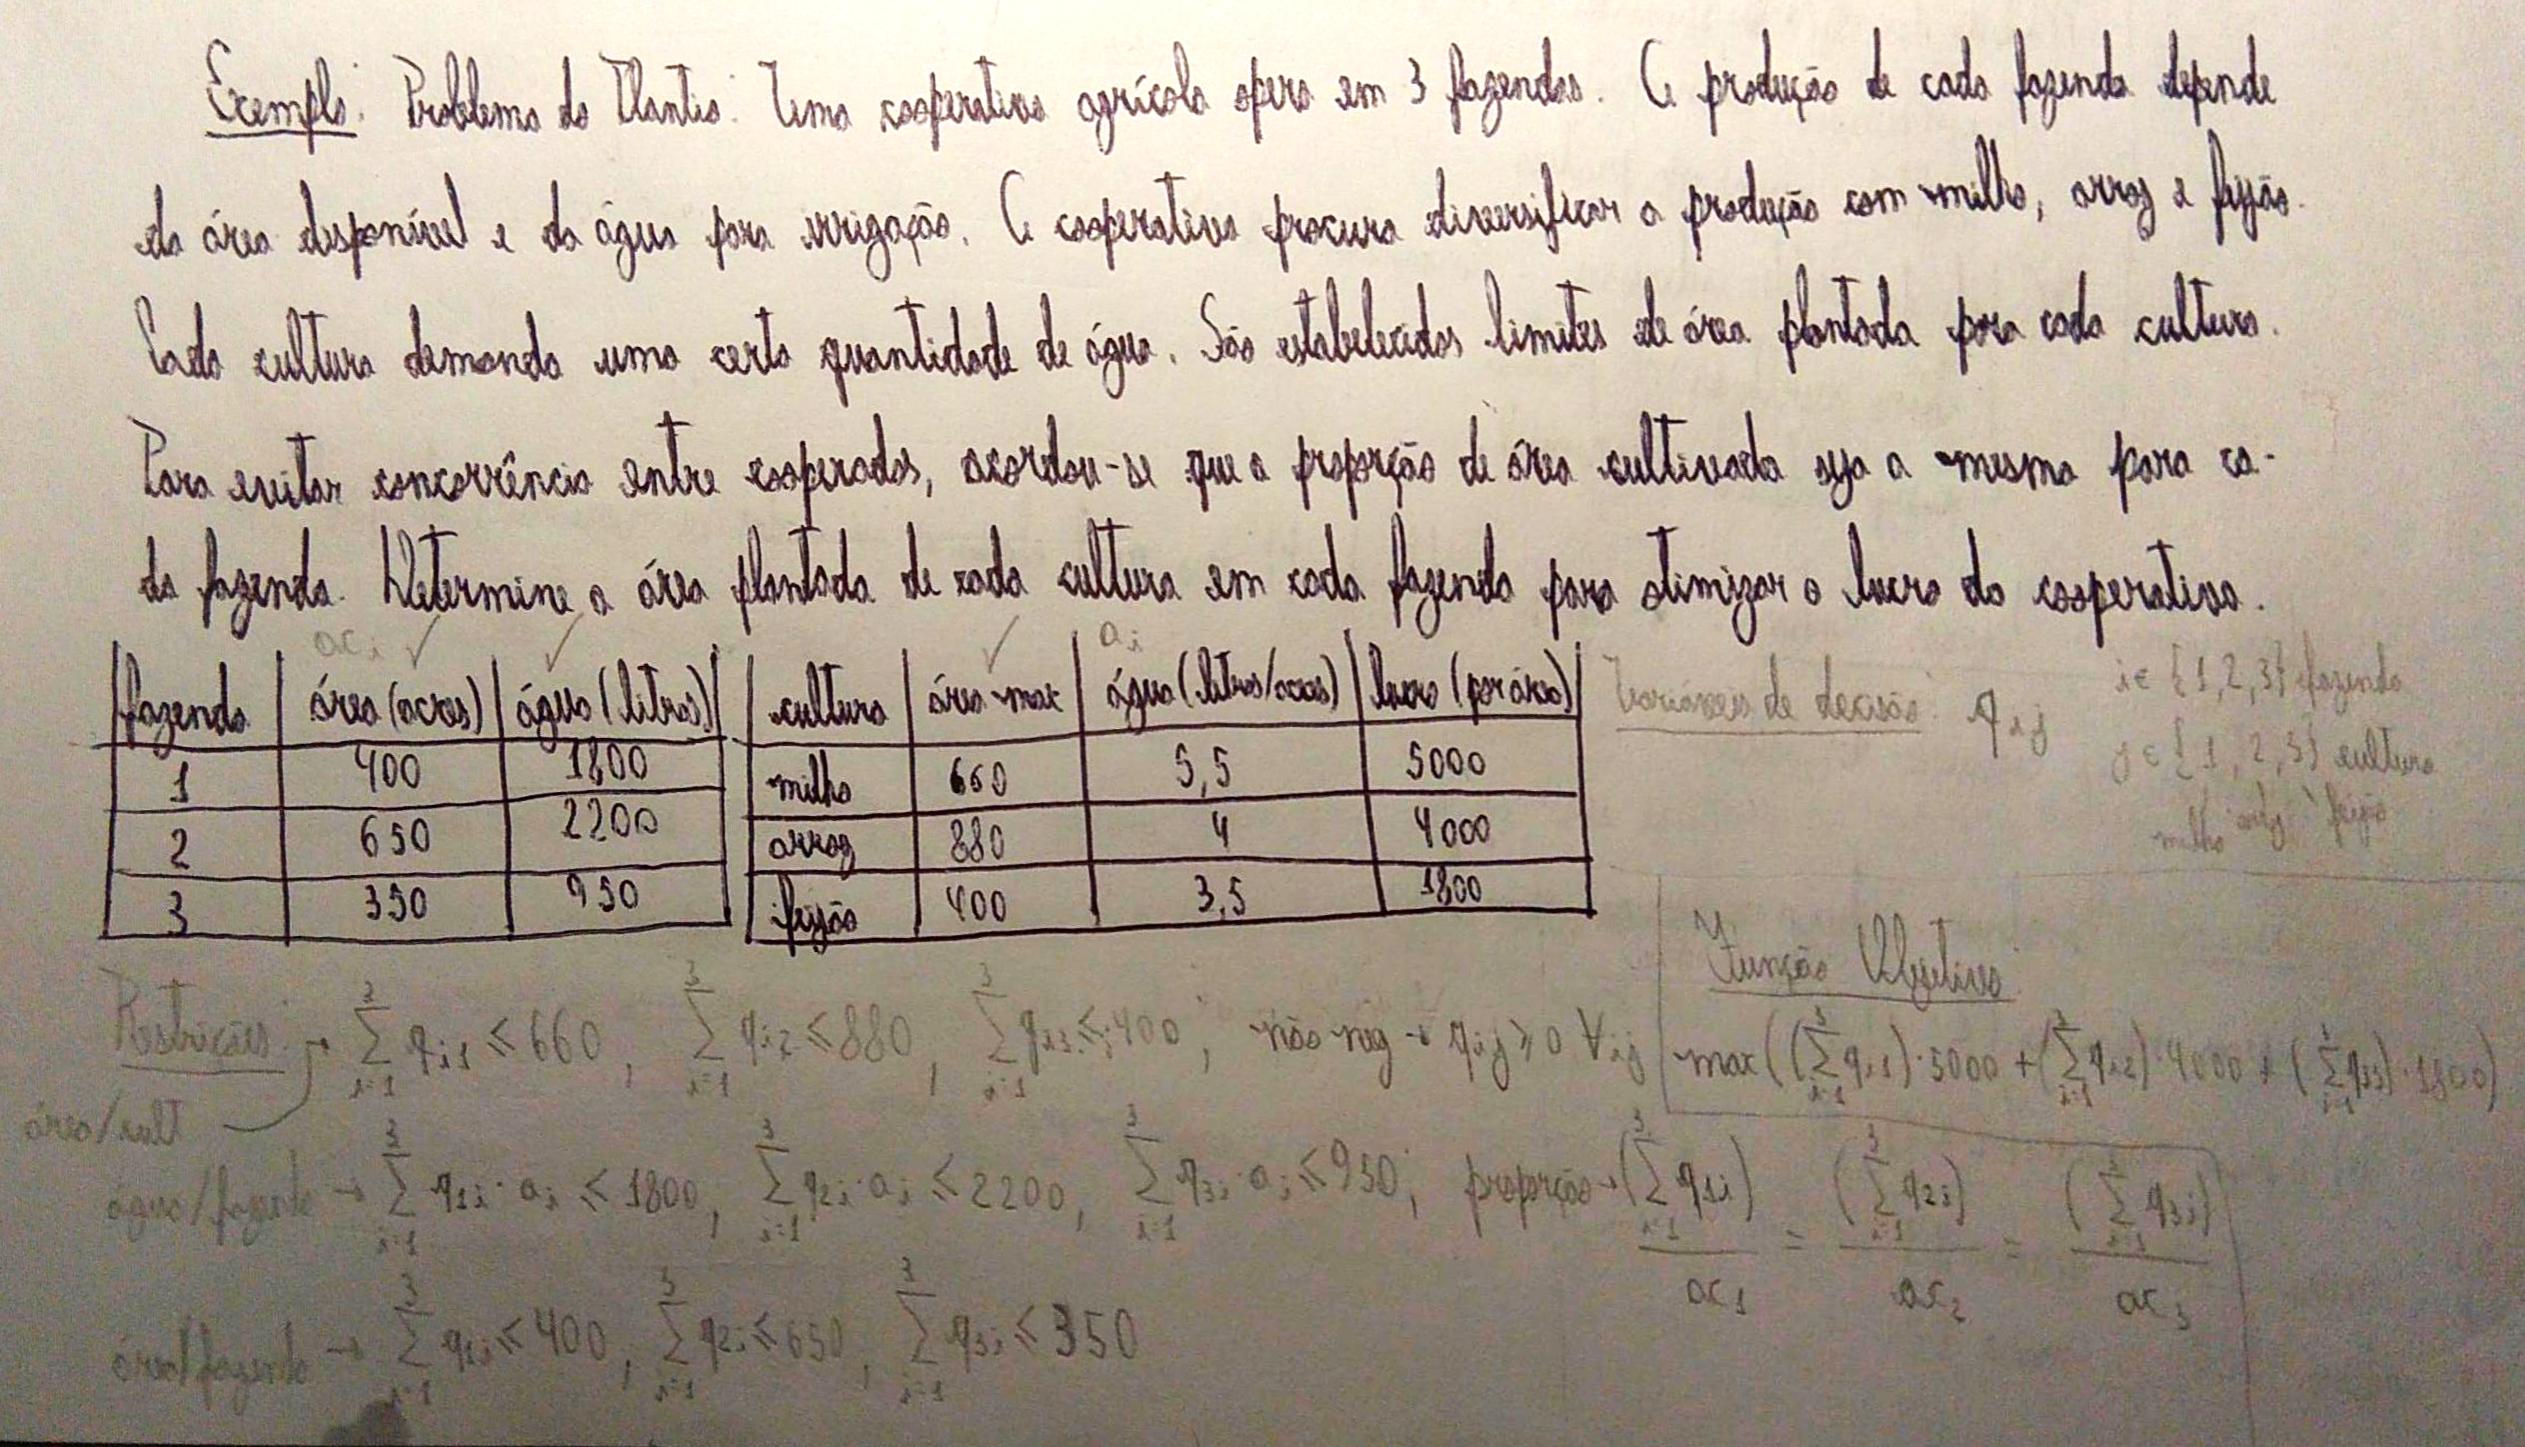 Exemplo: Problema do Plantio: Uma cooperativa agrícola opera em 3 fazendas. A produção de cada fazenda depende
da área disponível e da água para irrigação. A cooperativa procura diversificar a produção com milho, arroz e feijão.
Cada cultura demanda uma certa quantidade de água. São estabelecidos limites de área plantada para cada cultura.
Para evitar concorrência entre cooperados, acordou-se que a proporção de área cultivada seja a mesma para ca-
da fazenda. Determine a área plantada de cada cultura em cada fazenda para otimizar o lucro da cooperativa.
ac_i ✓ ✓ ✓ a_i
fazenda | área (acres) | água (litros)
1 | 400 | 1800
2 | 650 | 2200
3 | 350 | 950
cultura | área max | água (litros/acres) | lucro (por área)
milho | 660 | 5,5 | 5000
arroz | 880 | 4 | 4000
feijão | 400 | 3,5 | 1800
Variáveis de decisão: q_ij i ∈ {1,2,3} fazenda
j ∈ {1,2,3} cultura
milho arroz feijão
Função Objetivo:
max((∑_{i=1}^{3} q_i1)·5000 + (∑_{i=1}^{3} q_i2)·4000 + (∑_{i=1}^{3} q_i3)·1800)
Restrições: → ∑_{i=1}^{3} q_i1 ≤ 660, ∑_{i=1}^{3} q_i2 ≤ 880, ∑_{i=1}^{3} q_i3 ≤ 400; não neg → q_ij ≥ 0 ∀ij
área/cult
água/fazenda → ∑_{i=1}^{3} q_1i · a_i ≤ 1800, ∑_{i=1}^{3} q_2i · a_i ≤ 2200, ∑_{i=1}^{3} q_3i · a_i ≤ 950; proporção → (∑_{i=1}^{3} q_1i)/ac_1 = (∑_{i=1}^{3} q_2i)/ac_2 = (∑_{i=1}^{3} q_3i)/ac_3
área/fazenda → ∑_{i=1}^{3} q_1i ≤ 400, ∑_{i=1}^{3} q_2i ≤ 650, ∑_{i=1}^{3} q_3i ≤ 350